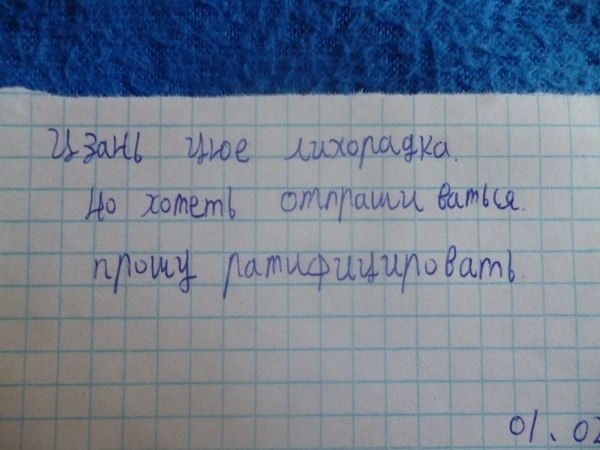 Цзань цюе лихорадка.
хотеть отпраши ваться.
прошу ратифицировать.
01.02